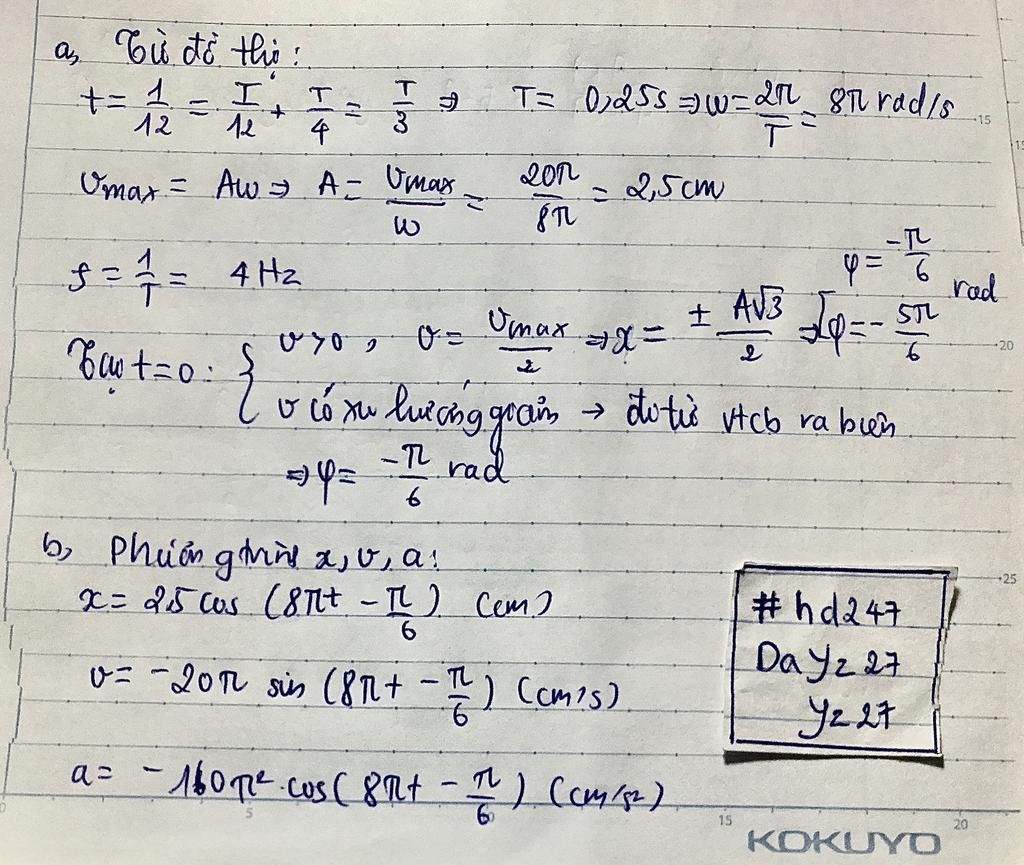 a, Từ đồ thị:
t = 1/12 = T/12 + T/4 = T/3 ⇒ T = 0,25s ⇒ ω = 2π/T = 8π rad/s
15
15
vmax = Aω ⇒ A = vmax/ω = 20π/8π = 2,5cm
f = 1/T = 4Hz
Tại t=0: { v>0, v = vmax/2 ⇒ x = ± A√3/2 ⇒ [ φ = -π/6 φ = -5π/6 rad
20
v có xu hướng giảm → đi từ vtcb ra biên
⇒ φ = -π/6 rad
b, Phương trình x, v, a:
25
x = 2,5 cos (8πt - π/6) (cm)
v = -20π sin (8πt - π/6) (cm/s)
a = -160π² cos (8πt - π/6) (cm/s²)
#hd247
DaYz27
Yz27
0 5 10 15 20
KOKUYO